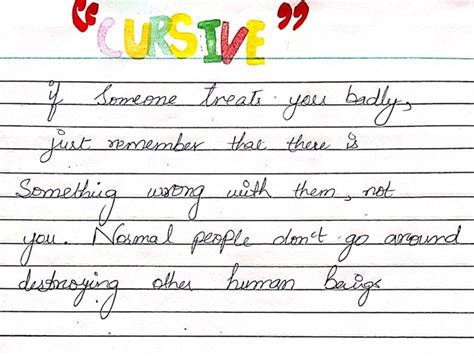 “CURSIVE”
if Someone treats you badly,
just remember that there is
Something wrong with them, not
you. Normal people don't go around
destroying other human beings